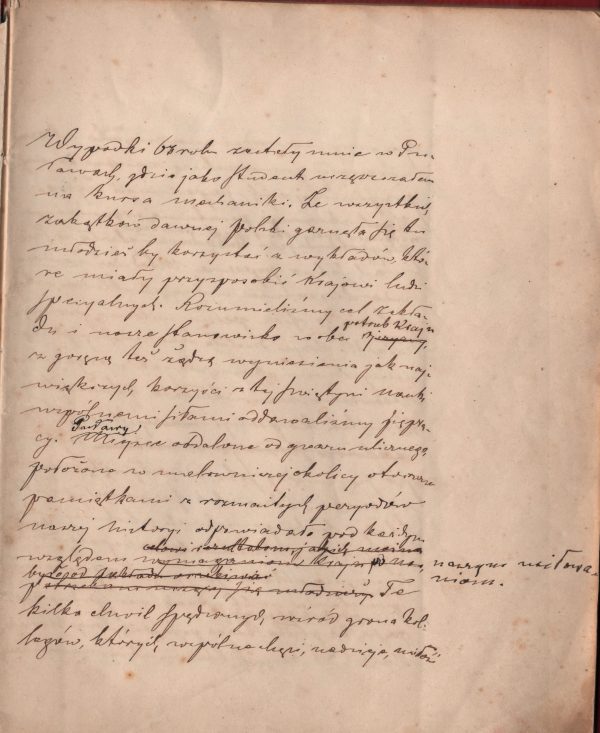 Wypadki 63 roku zastały mnie w Pu-
ławach, gdzie jako student uczęszczałem
na kursa mechaniki. Ze wszystkich
zakątków dawnej Polski garnęła się tu
młodzież by korzystać z wykładów, któ-
re miały przysposobić krajowi ludzi
specyalnych. Rozumieliśmy cel zakła-
potrzeb kraju
du i nasze stanowisko wobec
z gorącą też żądzą wyniesienia jak naj-
większych korzyści z tej świątyni nauki
wspólnemi siłami oddawaliśmy się pra-
Puławy
cy. Miejsce oddalone od gwaru ulicznego,
położone w malowniczej okolicy otoczone
pamiątkami z rozmaitych peryodów
naszej historyi odpowiadało pod każdym
celowi
względem naszym miłowa-
niom.
był
Te
kilka chwil spędzonych wśród grona kol-
legów, których wspólne chęci, nadzieje, miłość